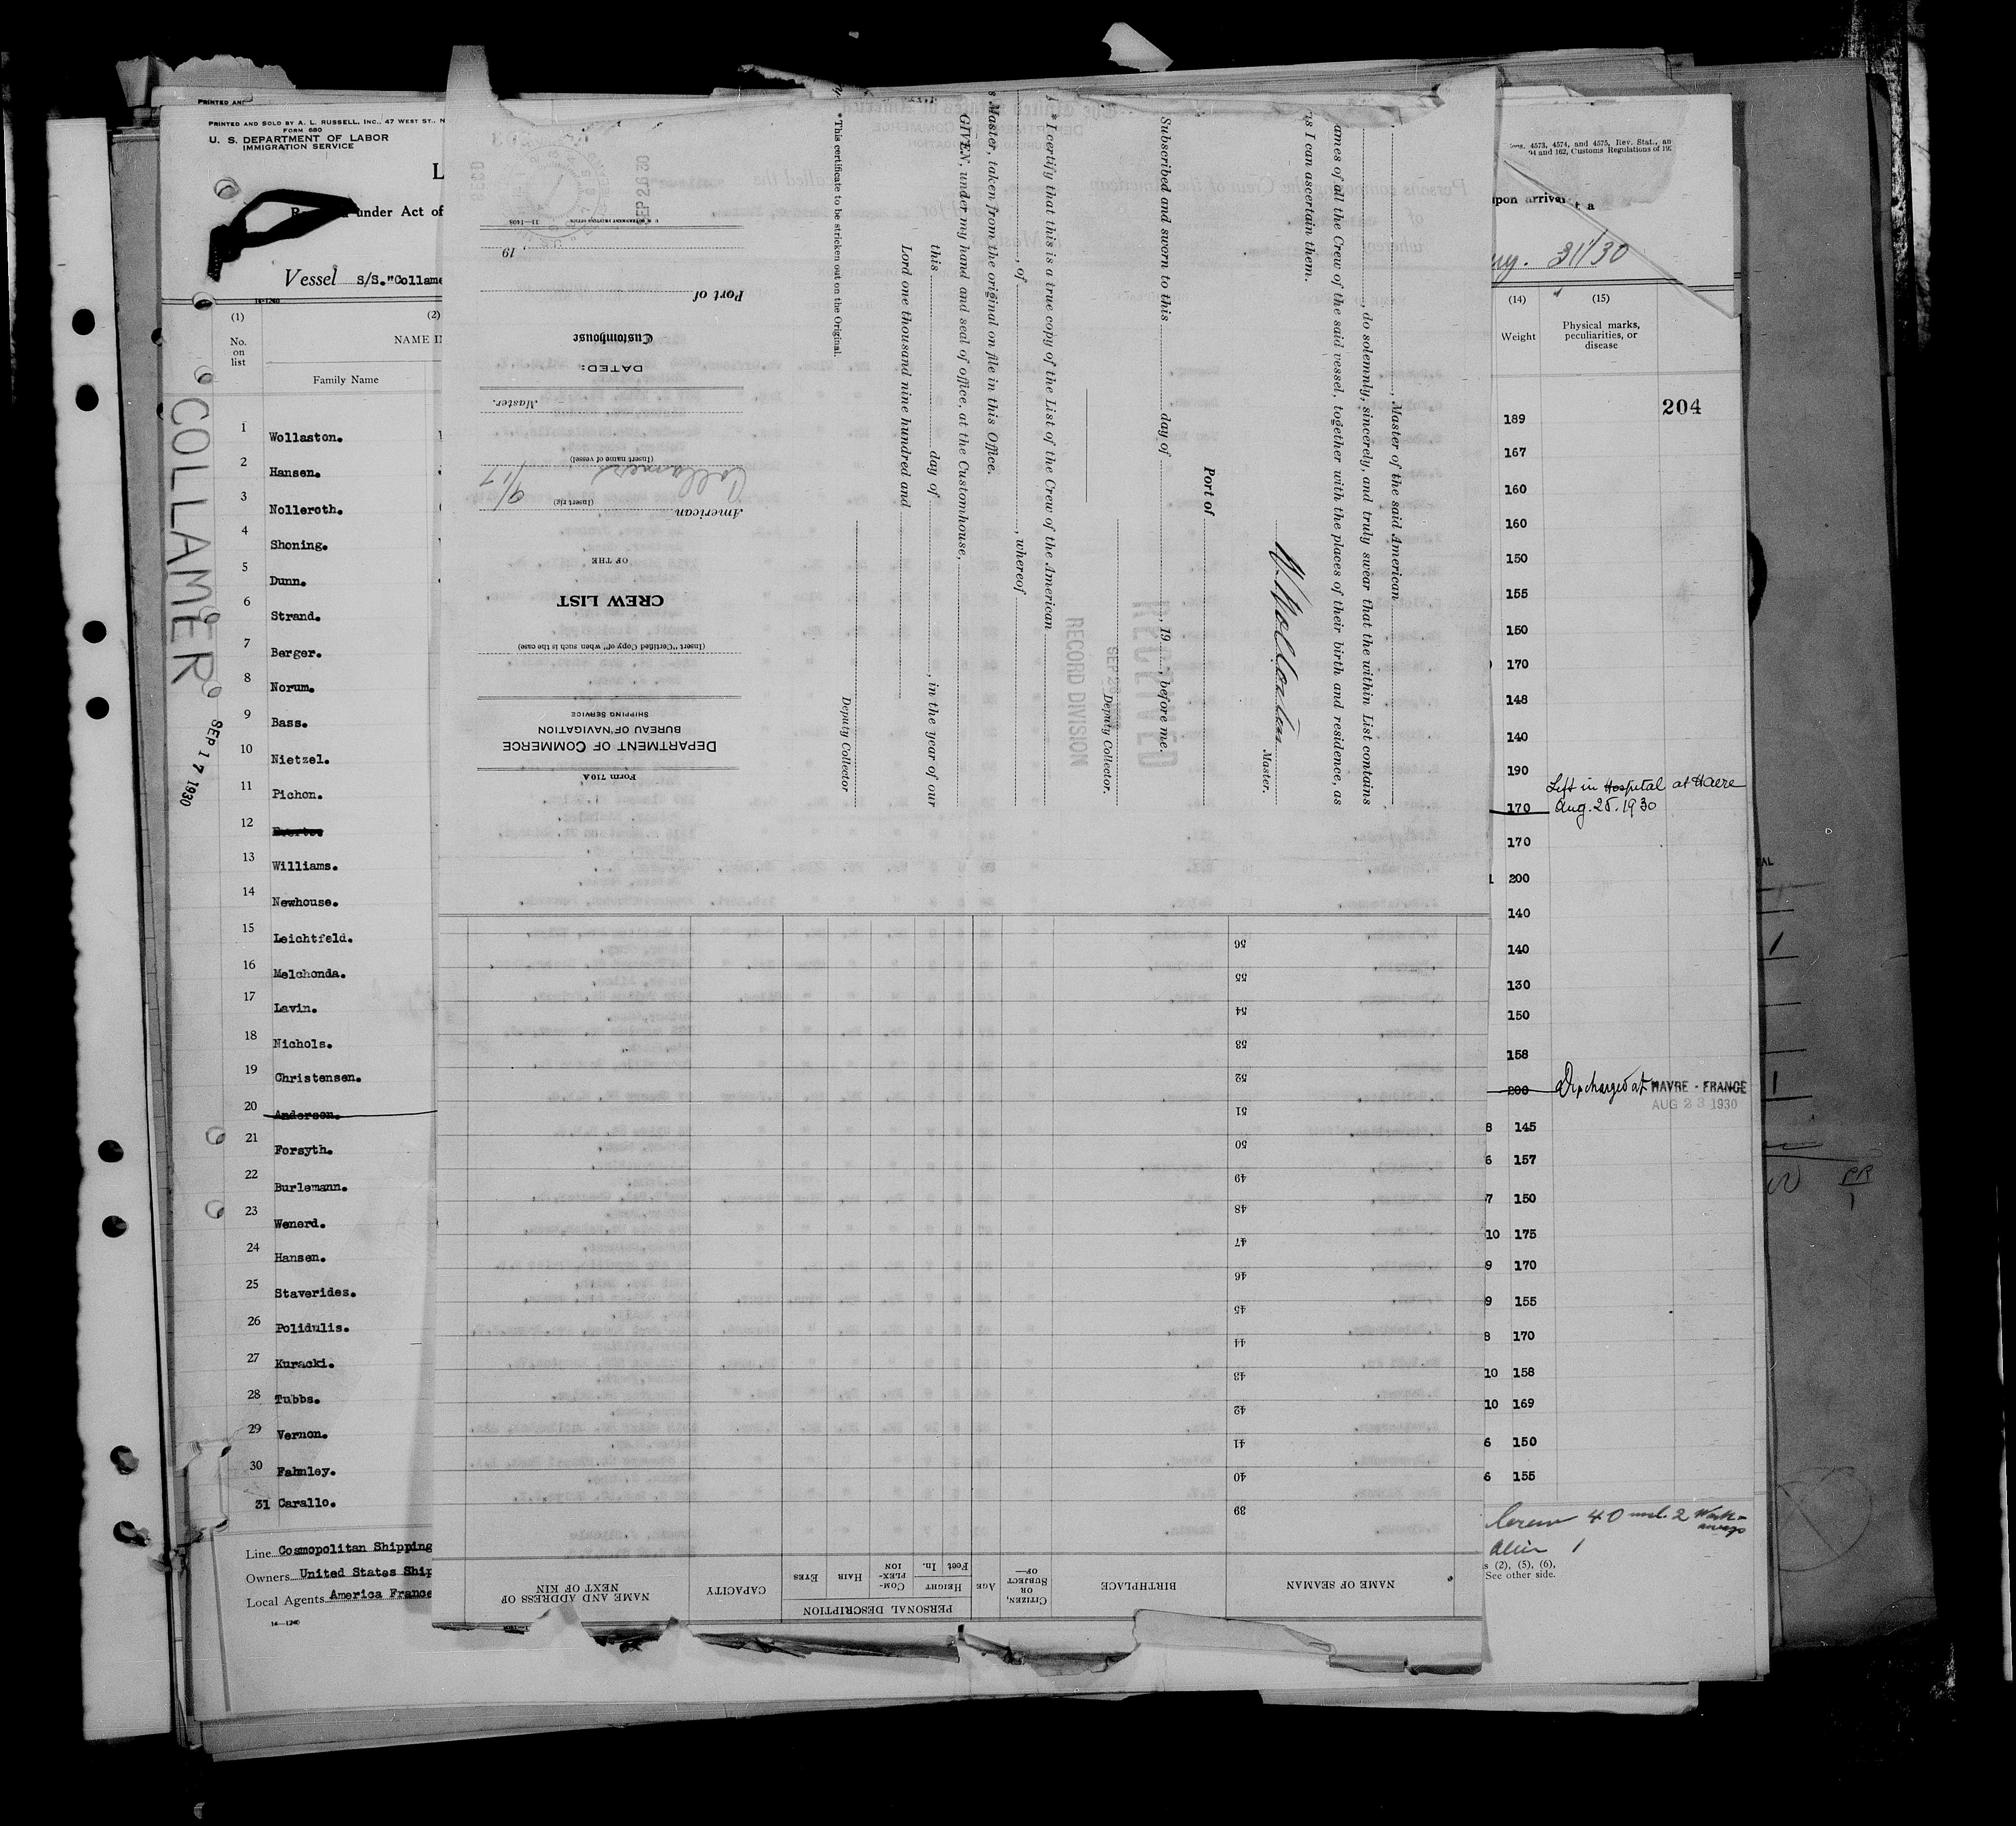 PRINTED AND
PRINTED AND SOLD BY A. L. RUSSELL, INC., 47 WEST ST., N
FORM 680
U. S. DEPARTMENT OF LABOR
IMMIGRATION SERVICE
L
under Act of
Vessel S/S."Collame
(1)
No.
on
list
(2)
NAME IN
Family Name
COLLAMER
SEP 17 1930
1 Wollaston.
2 Hansen.
3 Nolleroth.
4 Shoning.
5 Dunn.
6 Strand.
7 Berger.
8 Norum.
9 Bass.
10 Nietzel.
11 Pichon.
12
13 Williams.
14 Newhouse.
15 Leichtfeld.
16 Melchonda.
17 Lavin.
18 Nichols.
19 Christensen.
20 Anderson.
21 Forsyth.
22 Burlemann.
23 Wenerd.
24 Hansen.
25 Staverides.
26 Polidulis.
27 Kuracki.
28 Tubbs.
29 Vernon.
30 Fahnley.
31 Carallo.
Line Cosmopolitan Shipping
Owners United States Ship
Local Agents America France
14—1240
Form 710A
DEPARTMENT OF COMMERCE
BUREAU OF NAVIGATION
SHIPPING SERVICE
(Insert "Certified Copy of" when such is the case)
CREW LIST
OF THE
American
(Insert rig)
9/17
Collamer
(Insert name of vessel)
Master.
DATED:
Customhouse
Port of
19
U. S. GOVERNMENT PRINTING OFFICE 11—1408
SEP 26 30
, Master of the said American
, do solemnly, sincerely, and truly swear that the within List contains
ames of all the Crew of the said vessel, together with the places of their birth and residence, as
as I can ascertain them.
W. Wollaston
Master.
Port of
Subscribed and sworn to this day of , 19 , before me.
Deputy Collector.
RECEIVED
SEP 26
RECORD DIVISION
* I certify that this is a true copy of the List of the Crew of the American
, of , whereof
s Master, taken from the original on file in this Office.
GIVEN, under my hand and seal of office, at the Customhouse,
this day of , in the year of our
Lord one thousand nine hundred and
Deputy Collector
* This certificate to be stricken out on the Original.
NAME OF SEAMAN
BIRTHPLACE
CITIZEN,
OR
SUBJECT
OF—
Age
PERSONAL DESCRIPTION
HEIGHT
Feet In.
COM-
PLEX-
ION
HAIR
EYES
CAPACITY
NAME AND ADDRESS OF
NEXT OF KIN
39
40
41
42
43
44
45
46
47
48
49
50
51
52
53
54
55
56
ons. 4573, 4574, and 4575, Rev. Stat., an
94 and 162, Customs Regulations of 19
upon arrival at a
ug. 31/30
(14)
Weight
(15)
Physical marks,
peculiarities, or
disease
204
189
167
160
160
150
155
150
170
148
140
190
170 Left in Hospital at Havre
Aug. 25. 1930
170
200
140
140
130
150
158
200 Discharged at HAVRE - FRANCE
AUG 23 1930
8 145
6 157
7 150
10 175
9 170
9 155
8 170
10 158
10 169
6 150
6 155
Crew 40 incl. 2 Work-
aways
Alien 1
s (2), (5), (6),
See other side.
PR
1